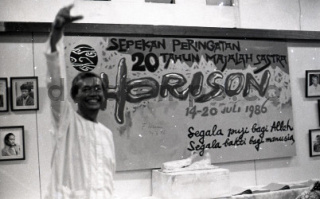 SEPEKAN PERINGATAN
20 TAHUN MAJALAH SASTRA
HORISON
14-20 JULI 1986
Segala puji bagi Allah,
Segala bakti bagi manusia